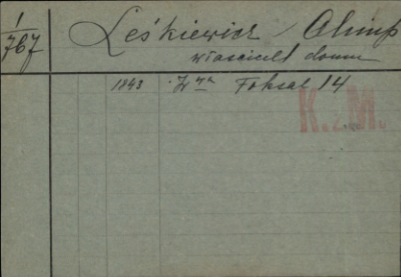 1
767
Leśkiewicz Olimp
właściciel domu
1843 Foksal 14
K. M.